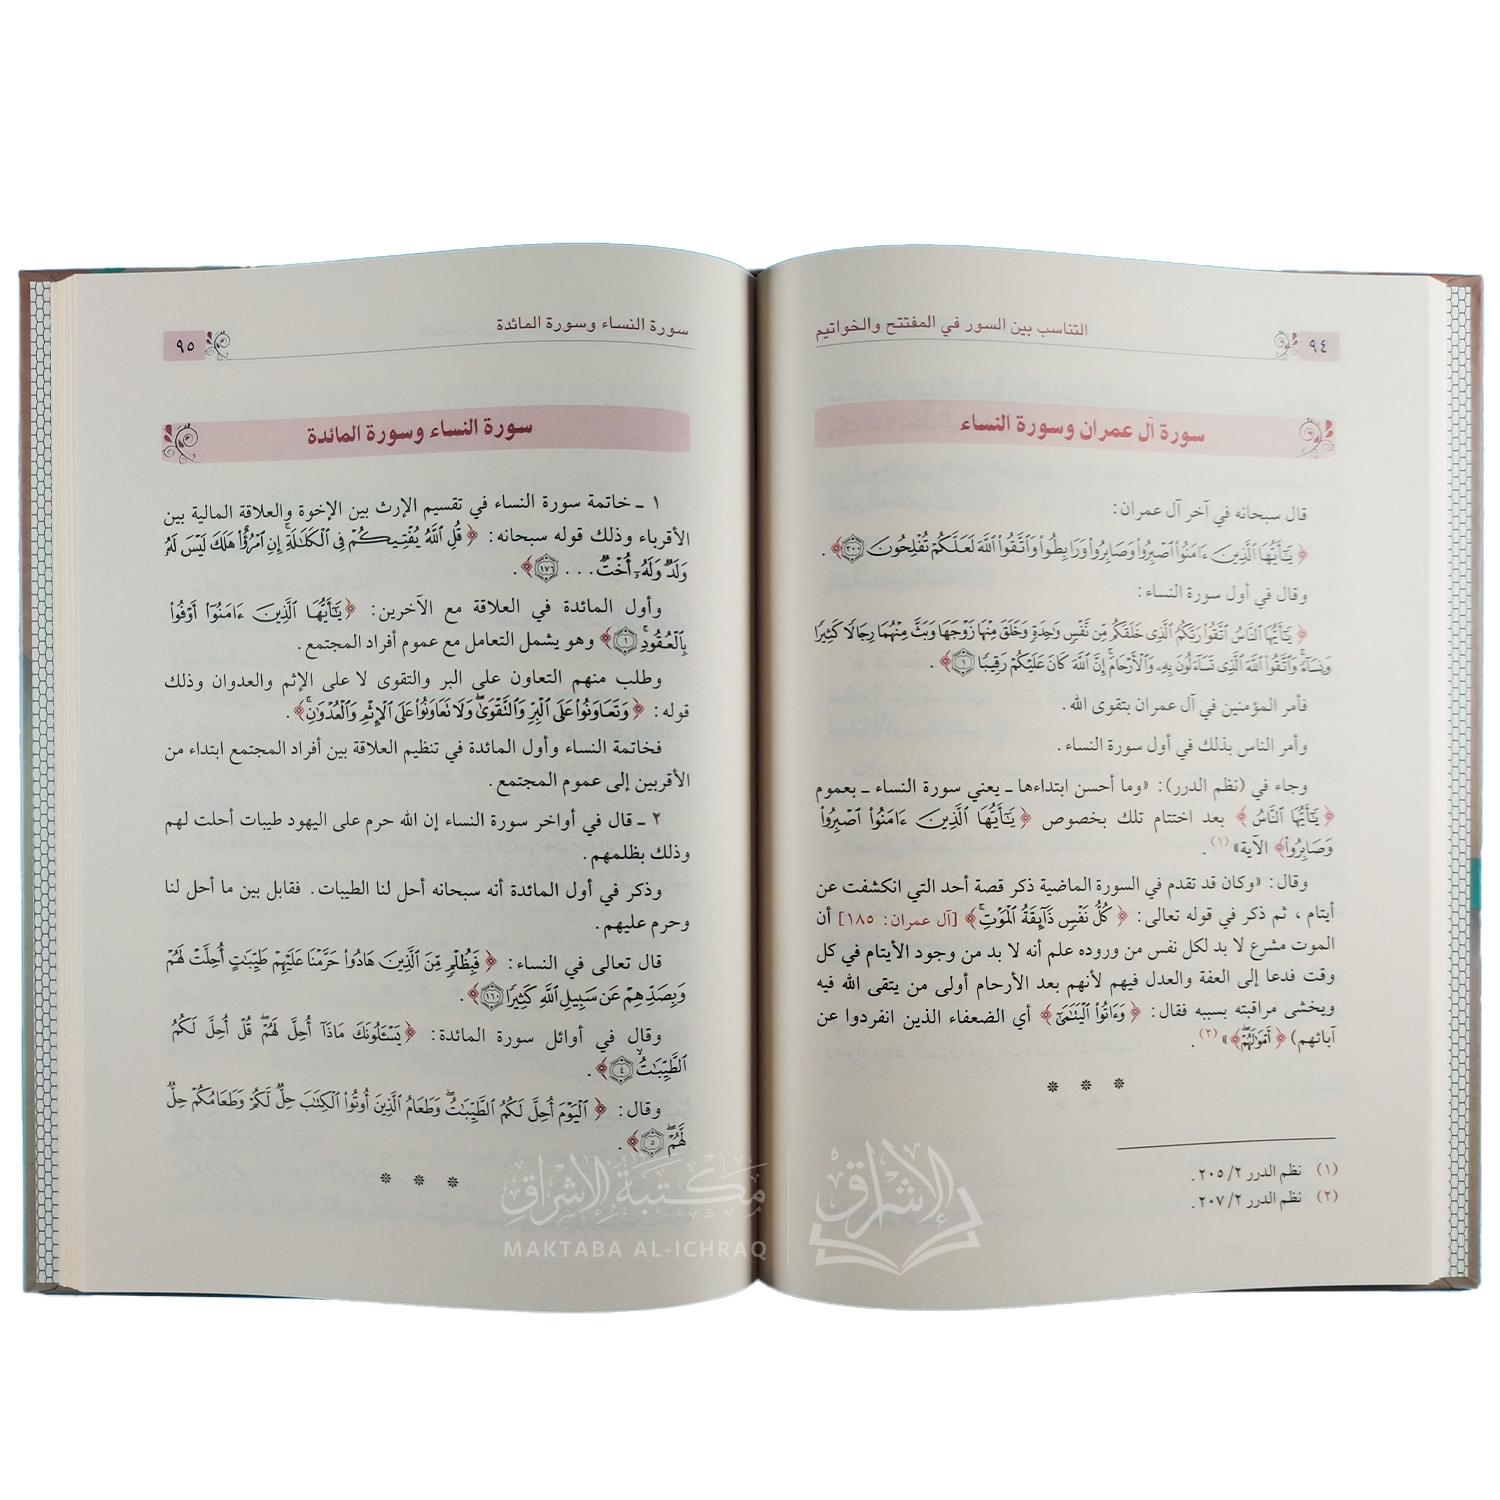 ٩٤
التناسب بين السور في المفتتح والخواتيم
سورة آل عمران وسورة النساء
قال سبحانه في آخر آل عمران:
﴿ يَٰٓأَيُّهَا ٱلَّذِينَ ءَامَنُوا۟ ٱصْبِرُوا۟ وَصَابِرُوا۟ وَرَابِطُوا۟ وَٱتَّقُوا۟ ٱللَّهَ لَعَلَّكُمْ تُفْلِحُونَ ٢٠٠﴾ .
وقال في أول سورة النساء:
﴿ يَٰٓأَيُّهَا ٱلنَّاسُ ٱتَّقُوا۟ رَبَّكُمُ ٱلَّذِى خَلَقَكُم مِّن نَّفْسٍ وَٰحِدَةٍ وَخَلَقَ مِنْهَا زَوْجَهَا وَبَثَّ مِنْهُمَا رِجَالًا كَثِيرًا
وَنِسَآءً ۚ وَٱتَّقُوا۟ ٱللَّهَ ٱلَّذِى تَسَآءَلُونَ بِهِۦ وَٱلْأَرْحَامَ ۚ إِنَّ ٱللَّهَ كَانَ عَلَيْكُمْ رَقِيبًا ١﴾ .
فأمر المؤمنين في آل عمران بتقوى الله .
وأمر الناس بذلك في أول سورة النساء .
وجاء في (نظم الدرر): «وما أحسن ابتداءها ـ يعني سورة النساء ـ بعموم
﴿ يَٰٓأَيُّهَا ٱلنَّاسُ ﴾ بعد اختتام تلك بخصوص ﴿يَٰٓأَيُّهَا ٱلَّذِينَ ءَامَنُوا۟ ٱصْبِرُوا۟
وَصَابِرُوا۟﴾ الآية» (١) .
وقال: «وكان قد تقدم في السورة الماضية ذكر قصة أحد التي انكشفت عن
أيتام ، ثم ذكر في قوله تعالى: ﴿ كُلُّ نَفْسٍ ذَآئِقَةُ ٱلْمَوْتِ ۗ﴾ [آل عمران: ١٨٥] أن
الموت مشرع لا بد لكل نفس من وروده علم أنه لا بد من وجود الأيتام في كل
وقت فدعا إلى العفة والعدل فيهم لأنهم بعد الأرحام أولى من يتقى الله فيه
ويخشى مراقبته بسببه فقال: ﴿ وَءَاتُوا۟ ٱلْيَتَٰمَىٰٓ ﴾ أي الضعفاء الذين انفردوا عن
آبائهم) ﴿ أَمْوَٰلَهُمْ ۖ﴾» (٢) .
* * *
(١) نظم الدرر ٢/ ٢٠٥ .
(٢) نظم الدرر ٢/ ٢٠٧ .
سورة النساء وسورة المائدة
٩٥
سورة النساء وسورة المائدة
١ ـ خاتمة سورة النساء في تقسيم الإرث بين الإخوة والعلاقة المالية بين
الأقرباء وذلك قوله سبحانه: ﴿ قُلِ ٱللَّهُ يُفْتِيكُمْ فِى ٱلْكَلَٰلَةِ ۚ إِنِ ٱمْرُؤٌا۟ هَلَكَ لَيْسَ لَهُۥ
وَلَدٌ وَلَهُۥٓ أُخْتٌ . . . ١٧٦﴾ .
وأول المائدة في العلاقة مع الآخرين: ﴿يَٰٓأَيُّهَا ٱلَّذِينَ ءَامَنُوٓا۟ أَوْفُوا۟
بِٱلْعُقُودِ ۚ ١﴾ وهو يشمل التعامل مع عموم أفراد المجتمع .
وطلب منهم التعاون على البر والتقوى لا على الإثم والعدوان وذلك
قوله: ﴿ وَتَعَاوَنُوا۟ عَلَى ٱلْبِرِّ وَٱلتَّقْوَىٰ ۖ وَلَا تَعَاوَنُوا۟ عَلَى ٱلْإِثْمِ وَٱلْعُدْوَٰنِ ۚ﴾ .
فخاتمة النساء وأول المائدة في تنظيم العلاقة بين أفراد المجتمع ابتداء من
الأقربين إلى عموم المجتمع .
٢ ـ قال في أواخر سورة النساء إن الله حرم على اليهود طيبات أحلت لهم
وذلك بظلمهم .
وذكر في أول المائدة أنه سبحانه أحل لنا الطيبات . فقابل بين ما أحل لنا
وحرم عليهم .
قال تعالى في النساء: ﴿ فَبِظُلْمٍ مِّنَ ٱلَّذِينَ هَادُوا۟ حَرَّمْنَا عَلَيْهِمْ طَيِّبَٰتٍ أُحِلَّتْ لَهُمْ
وَبِصَدِّهِمْ عَن سَبِيلِ ٱللَّهِ كَثِيرًا ١٦٠﴾ .
وقال في أوائل سورة المائدة: ﴿يَسْـَٔلُونَكَ مَاذَآ أُحِلَّ لَهُمْ ۖ قُلْ أُحِلَّ لَكُمُ
ٱلطَّيِّبَٰتُ ۙ ٤﴾ .
وقال: ﴿ ٱلْيَوْمَ أُحِلَّ لَكُمُ ٱلطَّيِّبَٰتُ ۖ وَطَعَامُ ٱلَّذِينَ أُوتُوا۟ ٱلْكِتَٰبَ حِلٌّ لَّكُمْ وَطَعَامُكُمْ حِلٌّ
لَّهُمْ ۖ ٥﴾ .
* * *
الإشراق
مكتبة الإشراق
MAKTABA AL-ICHRAQ